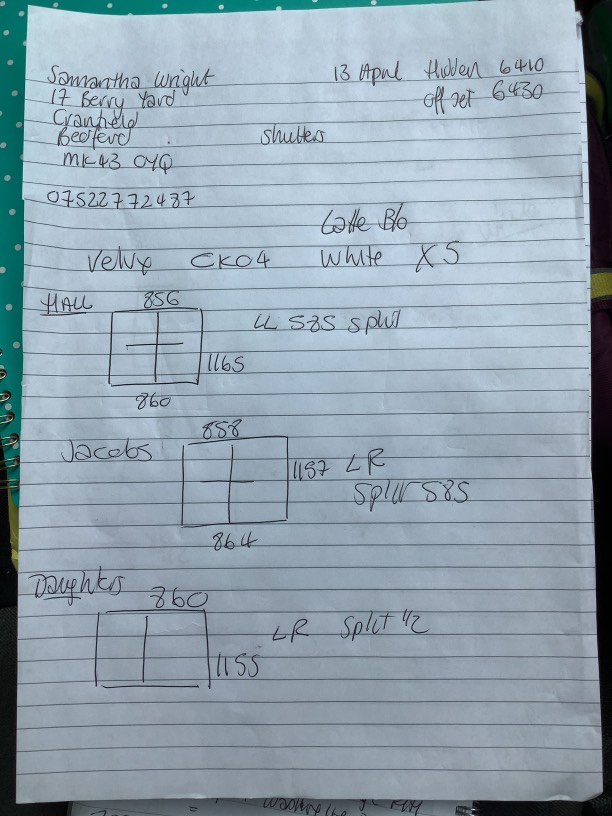 Samantha Wright
13 April Hidden 6410
17 Berry Yard
off set 6430
Cranfield
Bedford
Shutters
MK43 0YQ
07522772437
B/o
Velux CK04 White X5
HALL
856
LL 585 split
1165
860
Jacobs
858
1157 LR
Split 585
864
Daughters
860
LR Split 1/2
1155